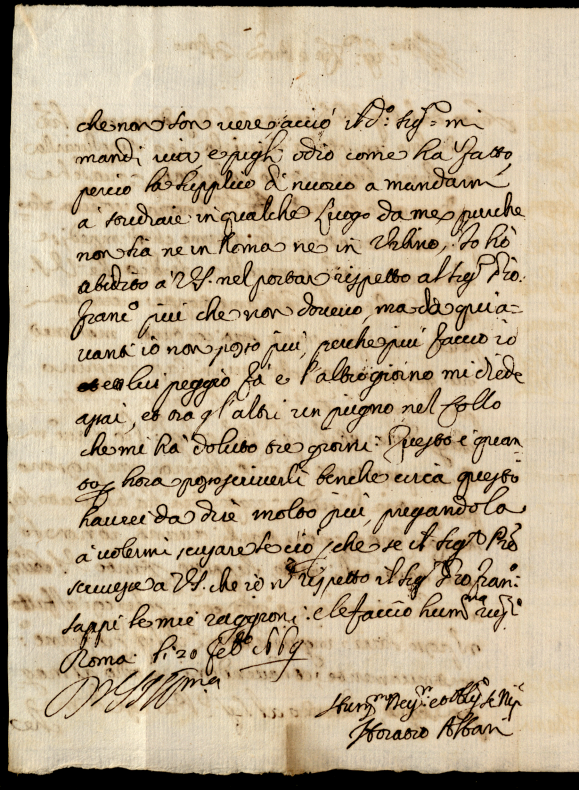 che non son vere acciò il dº. Sigʳ. mi
mandi via e pigli odio come ha fatto,
perciò la supplico di nuovo a mandarmi
à studiare in qualche luogo da me, purche
non sia ne in Roma ne in Urbino. Io hò
obidito a V.S. nel portar rispetto al Sigʳ
Francº più che non dovevo, ma da qui a=
vanti io non posso più, perche più faccio io
lui peggio fà e l'altro giorno mi diede
assai, et ora gl'altri un pugno nel Collo
che mi hà doluto tre giorni. Questo è quan=
to hora posso scriverli benche circa questo
havrei da dire molto più, pregandola
à volermi scusare se ciò, che se il Sigʳ
scrivesse a V.S. che io nº rispetto il Sigʳ
sappi le mie raggioni: e le faccio humᵐᵃ
Roma li 20 febº 1669
Humº et Obligº Nip
Horatio Albani